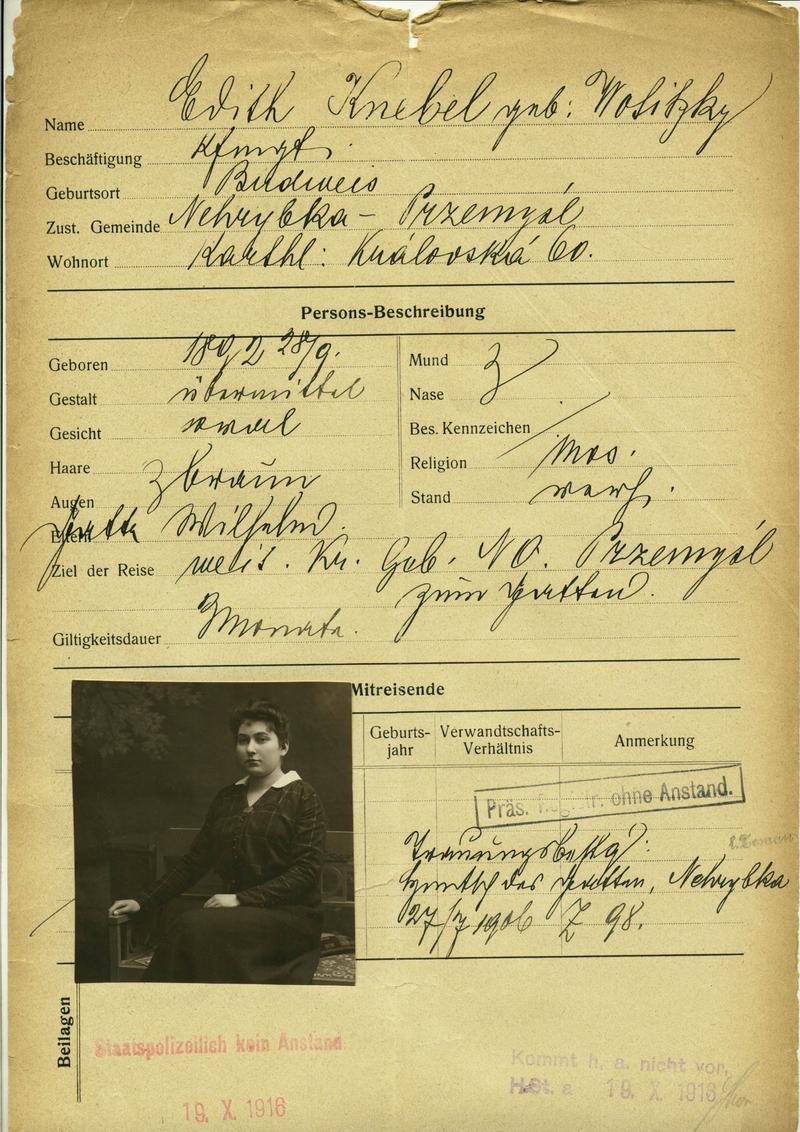 Name Edith Knebel geb: Wolitzky
Beschäftigung
Geburtsort Budweis
Zust. Gemeinde Nehrybka - Przemyśl
Wohnort Karthl: Královská 60.
Persons-Beschreibung
Geboren 1892 28/9.
Gestalt übermittel
Gesicht oval
Haare
Augen braun
Eltern Gatte Wilhelm.
Ziel der Reise weit. Kr. Geb. NO. Przemyśl
zum Gatten.
Giltigkeitsdauer 3 Monate.
Mund
Nase
Bes. Kennzeichen
Religion mos.
Stand verh.
Mitreisende
Geburts-jahr
Verwandtschafts-Verhältnis
Anmerkung
Präs. Registr. ohne Anstand.
des Gatten, Nehrybka
27/7 1906 Z 98.
Beilagen
Staatspolizeilich kein Anstand
19. X. 1916
Kommt h. a. nicht vor.
19. X. 1916